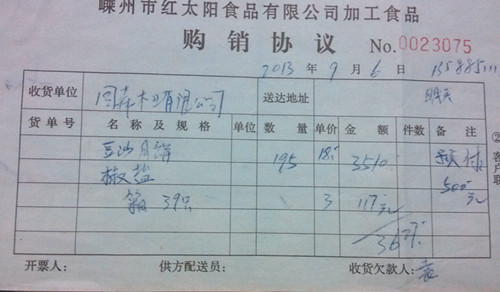 嵊州市红太阳食品有限公司加工食品
购销协议 No.0023075
2013年9月6日
收货单位 木业有限公司 送达地址 明天
货单号 名称及规格 单位 数量 单价 金额 件数 备注
豆沙月饼 195 18. 3510. 预付
椒盐 500元
箱 39只 3 117元
3627.
开票人： 供方配送员： 收货欠款人：袁
② 客户联